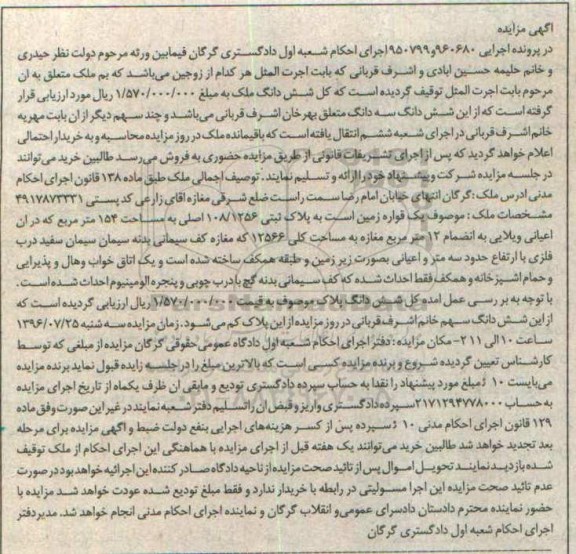 اگهی مزایده
در پرونده اجرایی ۹۶۰۶۸۰و۹۵۰۷۹۹اجرای احکام شعبه اول دادگستری گرگان فیمابین ورثه مرحوم دولت نظر حیدری
و خانم حلیمه حسین ابادی و اشرف قربانی که بابت اجرت المثل هر کدام از زوجین می‌باشد که یم ملک متعلق به ان
مرحوم بابت اجرت المثل توقیف گردیده است که کل شش دانگ ملک به مبلغ ۱/۵۷۰/۰۰۰/۰۰۰ ریال مورد ارزیابی قرار
گرفته است که از این شش دانگ سه دانگ متعلق بهرخان اشرف قربانی می‌باشد و چند سهم دیگر از ان بابت مهریه
خانم اشرف قربانی در اجرای شعبه ششم انتقال یافته است که باقیمانده ملک در روز مزایده محاسبه و به خریدار احتمالی
اعلام خواهد گردید که پس از اجرای تشریفات قانونی از طریق مزایده حضوری به فروش می‌رسد طالبین خرید می‌توانند
در جلسه مزایده شرکت وپیشنهاد خود را ارائه و تسلیم نمایند . توصیف اجمالی ملک طبق ماده ۱۳۸ قانون اجرای احکام
مدنی ادرس ملک :گرگان انتهای خیابان امام رضا سمت راست ضلع شرقی مغازه اقای زارعی کد پستی ۴۹۱۷۸۷۳۳۳۱
مشخصات ملک : موصوف یک قواره زمین است به پلاک ثبتی ۱۰۸/۱۲۵۶ اصلی به مساحت ۱۵۴ متر مربع که در ان
اعیانی ویلایی به انضمام ۱۲ متر مربع مغازه به مساحت کلی ۱۲۵۶۶ که مغازه کف سیمانی بدنه سیمان سیمان سفید درب
فلزی با ارتفاع حدود سه متر و اعیانی بصورت زیر زمین و طبقه همکف ساخته شده است و یک اتاق خواب وهال و پذیرایی
و حمام اشپز خانه و همکف فقط احداث شده که کف سیمانی بدنه گچ با درب چوبی و پنجره الومینیوم احداث شده است .
با توجه به بر رسی عمل امده کل شش دانگ پلاک موصوف به قیمت ۱/۵۷۰/۰۰۰/۰۰۰ ریال ارزیابی گردیده است که
از این شش دانگ سهم خانم اشرف قربانی در روز مزایده از این پلاک کم می‌شود . زمان مزایده سه شنبه ۱۳۹۶/۰۷/۲۵
ساعت ۱۰ الی ۲۱۱- مکان مزایده : دفتر اجرای احکام شعبه اول دادگاه عمومی حقوقی گرگان مزایده از مبلغی که توسط
کارشناس تعیین گردیده شروع و برنده مزایده کسی است که بالاترین مبلغ را در جلسه زایده قبول نماید برنده مزایده
می‌بایست ۱۰ ٪ مبلغ مورد پیشنهاد را نقدا به حساب سپرده دادگستری تودیع و مابقی ان ظرف یکماه از تاریخ اجرای مزایده
به حساب ۲۱۷۱۲۹۴۷۷۸۰۰۰سپرده دادگستری واریز و قبض ان راتسلیم دفتر شعبه نمایند در غیر این صورت وفق ماده
۱۲۹ قانون اجرای احکام مدنی ۱۰ ٪ سپرده پس از کسر هزینه‌های اجرایی بنفع دولت ضبط و اگهی مزایده برای مرحله
بعد تجدید خواهد شد طالبین خرید می‌توانند یک هفته قبل از اجرای مزایده با هماهنگی این اجرای احکام از ملک توقیف
شده بازدید نمایند تحویل اموال پس از تائید صحت مزایده از ناحیه دادگاه صادر کننده این اجرائیه خواهد بود در صورت
عدم تائید صحت مزایده این اجرا مسولیتی در رابطه با خریدار ندارد و فقط مبلغ تودیع شده عودت خواهد شد مزایده با
حضور نماینده محترم دادستان دادسرای عمومی‌و انقلاب گرگان و نماینده اجرای احکام مدنی انجام خواهد شد. مدیردفتر
اجرای احکام شعبه اول دادگستری گرگان